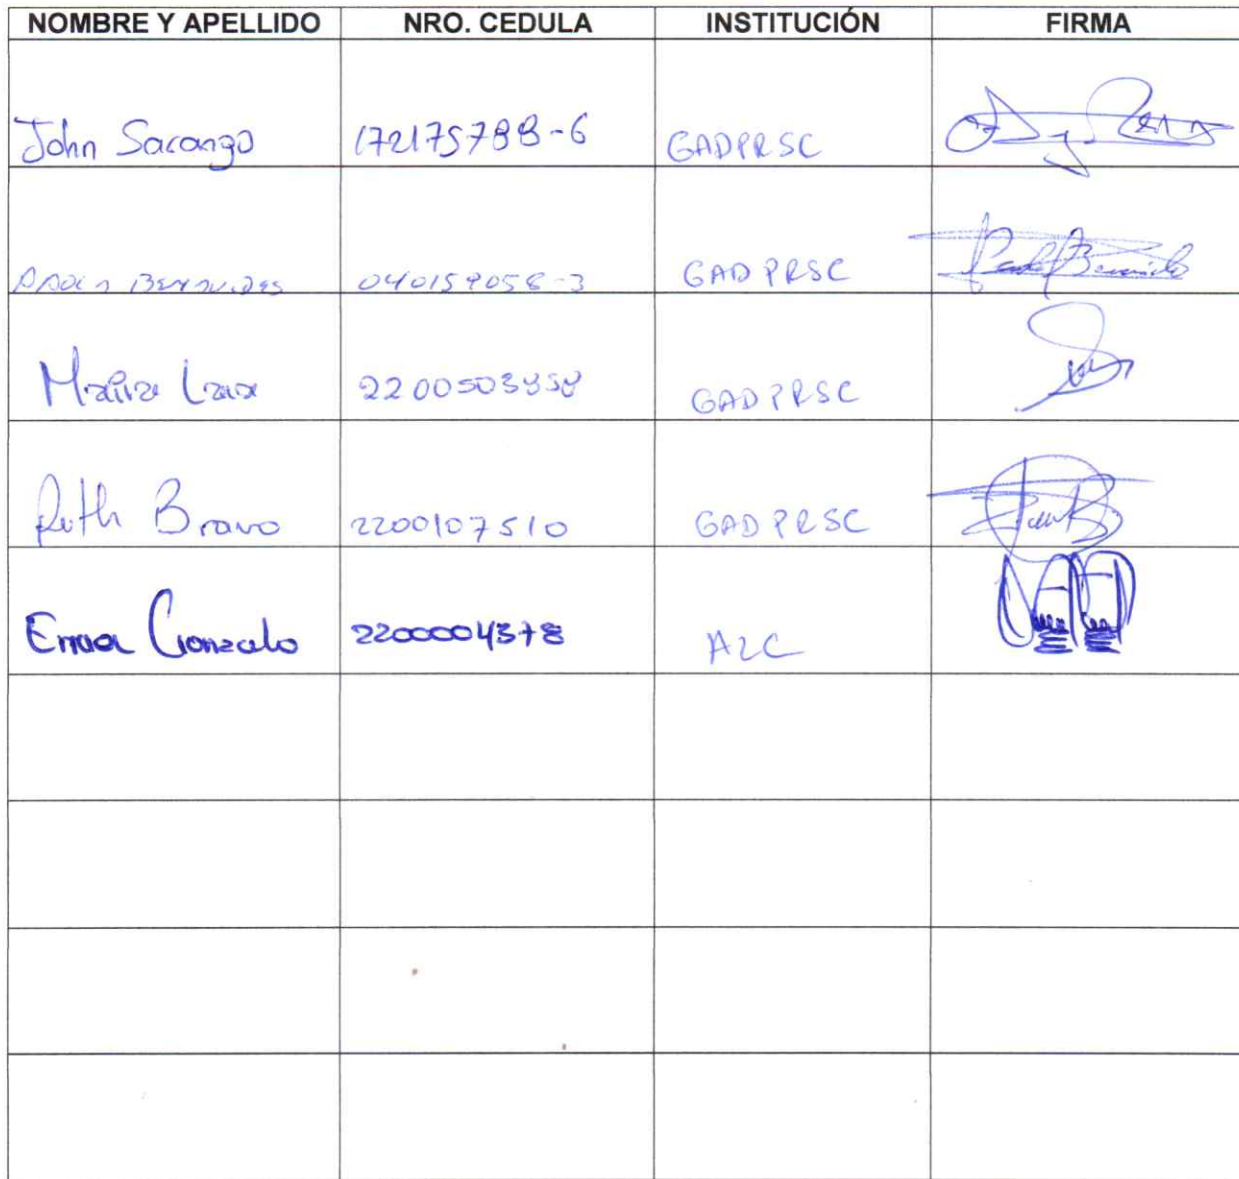 NOMBRE Y APELLIDO NRO. CEDULA INSTITUCIÓN FIRMA
John Sarango 172175788-6 GADPRSC
040159058-3 GAD PRSC
2200503958 GADPRSC
Ruth Bravo 2200107510 GAD PRSC
Gonzalo 2200004378 AZC